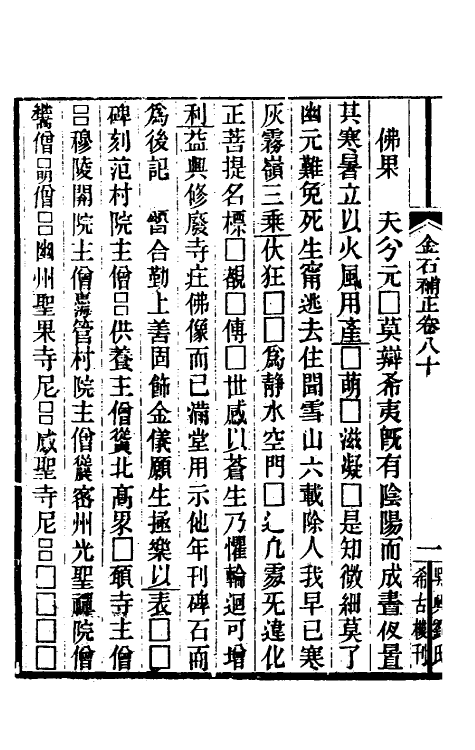 金石補正卷八十
一
希古樓刊
佛果　夫兮元□莫辯希夷旣有陰陽而成晝夜置
其寒暑立以火風用產□萌□滋凝□是知微細莫了
幽元難免死生甯逃去住聞雪山六載除人我早已寒
灰霧嶺三乘伏狂□□爲靜水空門□辶凢處死違化
正菩提名標□覩□傳□世感以蒼生乃懼輪迴可增
利益興修廢寺庄佛像而已滿堂用示他年刊碑石而
爲後記　合勤上善固飾金儀願生極樂以表□□
碑刻范村院主僧　供養主僧　北高界□頟寺主僧
穆陵關院主僧　管村院主僧　密州光聖禪院僧
僧　僧　幽州聖果寺尼　感聖寺尼　□□□□